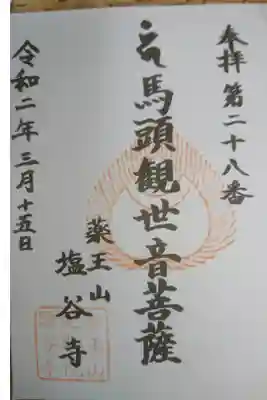 奉拝第二十八番
馬頭観世音菩薩
薬王山
塩谷寺
令和二年三月十五日